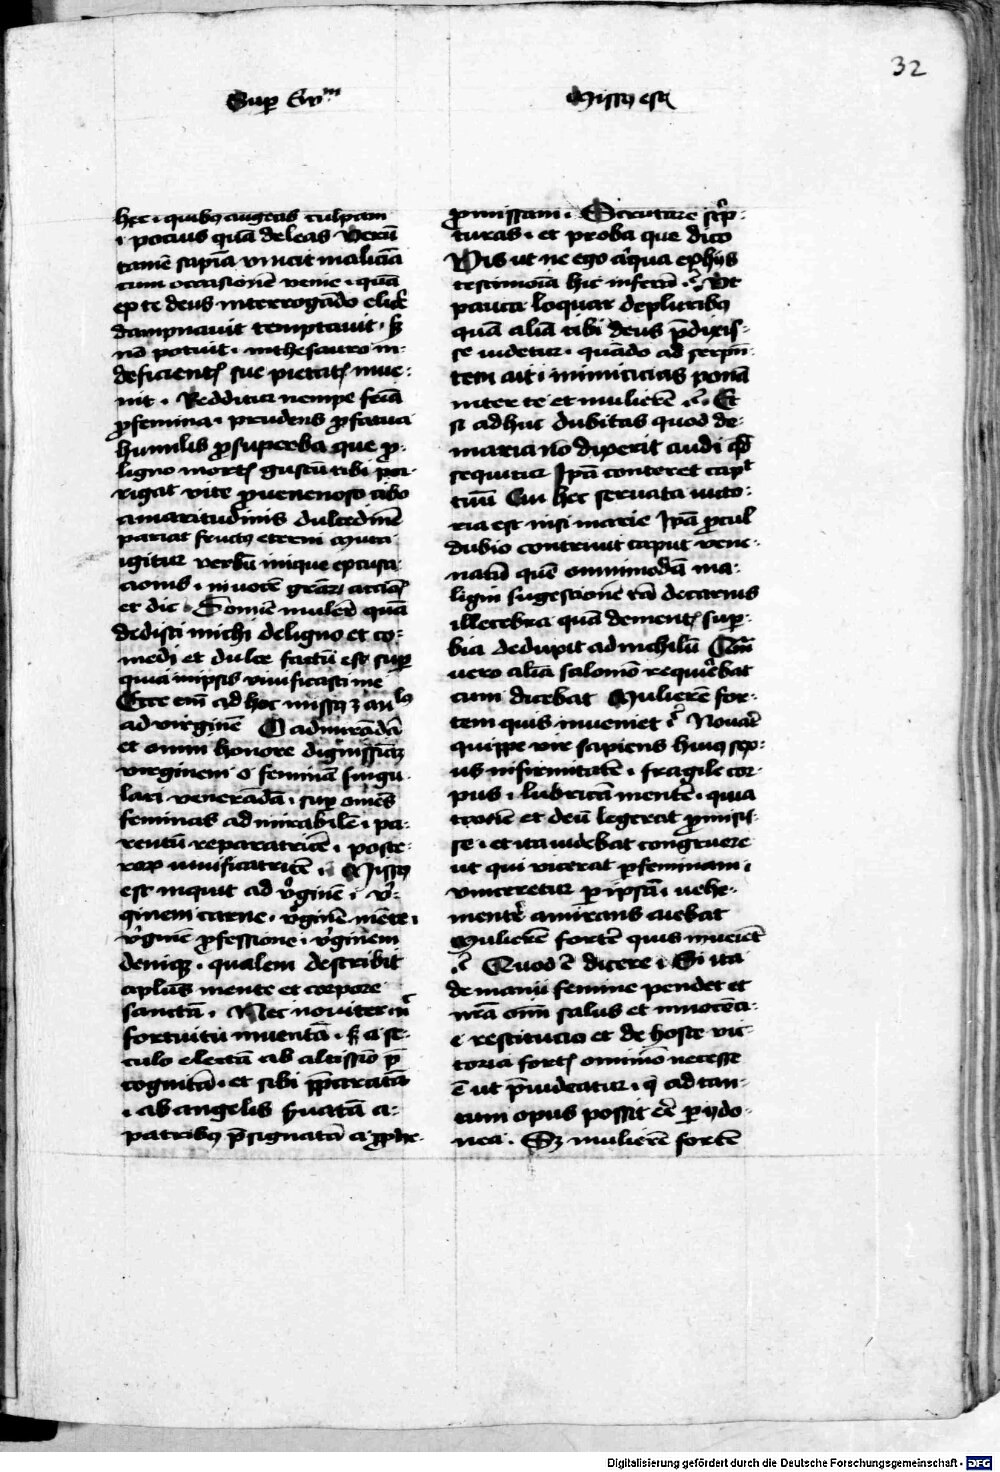 32
Sup Ewm
Missꝰ est
hec · quibꝰ augeas culpam
· pocius quā deleas Verū
tamē sapīa vincit maliciā
cum occasionē venie · quā
ex te deus interrogādo elicē
dampnauit temptauit · sꝫ
nō potuit · inthesauro in-
deficientꝭ sue pietatꝭ inue-
nit · Redditur nempe fēīa
ꝓfemina · prudens ꝓfatua
humilis ꝓsuperba que ꝓ-
ligno mortꝭ gustū tibi por-
rigat vite ꝓuenenoso cibo
amaritudinis dulcedinē
pariat fructꝰ eterni Muta
igitur verbū inique excusa
cionis · in vocē grāꝝ actiōꝭ
et dic · Domīe mulier quā
dedisti michi deligno et co-
medi et dulce factū est sup
quia inipsis viuificasti me
Ecce eīm ad hoc missꝰ ē anlꝰ
ad virginē O admirādā
et omni honore dignissimā
virginem o feminā singu-
larī venerādā · sup omēs
feminas admirabilē · pa-
rentū reparatricē · poste-
roꝝ viuificatricē · Missꝰ
est inquit ad v̓ginē · v̓-
ginem carne · v̓ginē mēte ·
v̓ginē ꝓfessione · v̓ginem
deniqꝫ · qualem describit
apl̄us mente et corpore
sanctā · Nec nouiter n̄
fortuitu inuentā · sꝫ a se-
culo electā ab altissīo p̄
cognitā · et sibi p̄paratā
· ab angelis s̄uatā a-
patribꝰ p̄signatā a ꝓphe-
ꝓmissam · Scrutare sc̄p-
turas · et proba que dico
Vis ut ne ego aliqua ex hijs
testimoīa hic inferā · Vt
pauca loquar depluribꝰ
quā aliā tibi deus p̄dixis-
se uidetur · quādo ad serpn̄-
tem ait · inimicicias ponā
inter te et mulierē · Et
si adhuc dubitas quod de-
maria nō dixerit audi qd̄
sequitur Ip̄a conteret capt
tuū Cui hec seruata uicto-
ria est nisi marie Ip̄a ꝓcul
dubio contriuit caput vene-
natū que omnimodā ma-
ligni sugestionē tā decarnis
illecebra quā dementꝭ sup-
bia deduxit adnichilū Quā
vero aliā salomō requirebat
cum dicebat Mulierē for-
tem quis inueniet · Nouat
quippe vir sapiens huiꝰ sex-
us infirmitatē · fragile cor-
pus · lubricā mentē · quia
tamē et deū legerat ꝓmisis-
se · et ita uidebat congruere
ut qui vicerat ꝑfeminam ·
vinceretur ꝑ ipsā · uehe-
menter amirans aiebat
Mulierē fortē quis inueiet
· Quod ē dicere · Si ita
de manu femine pendet et
nr̄a oīm salus et innocēci-
e restitucio et de hoste vic-
toria fortꝭ omnīo necesse
ē ut p̄uideatur · q̄ ad tan-
tum opus possit eē ꝑ ydo-
nea · Sꝫ mulierē fortē
Digitalisierung gefördert durch die Deutsche Forschungsgemeinschaft - DFG